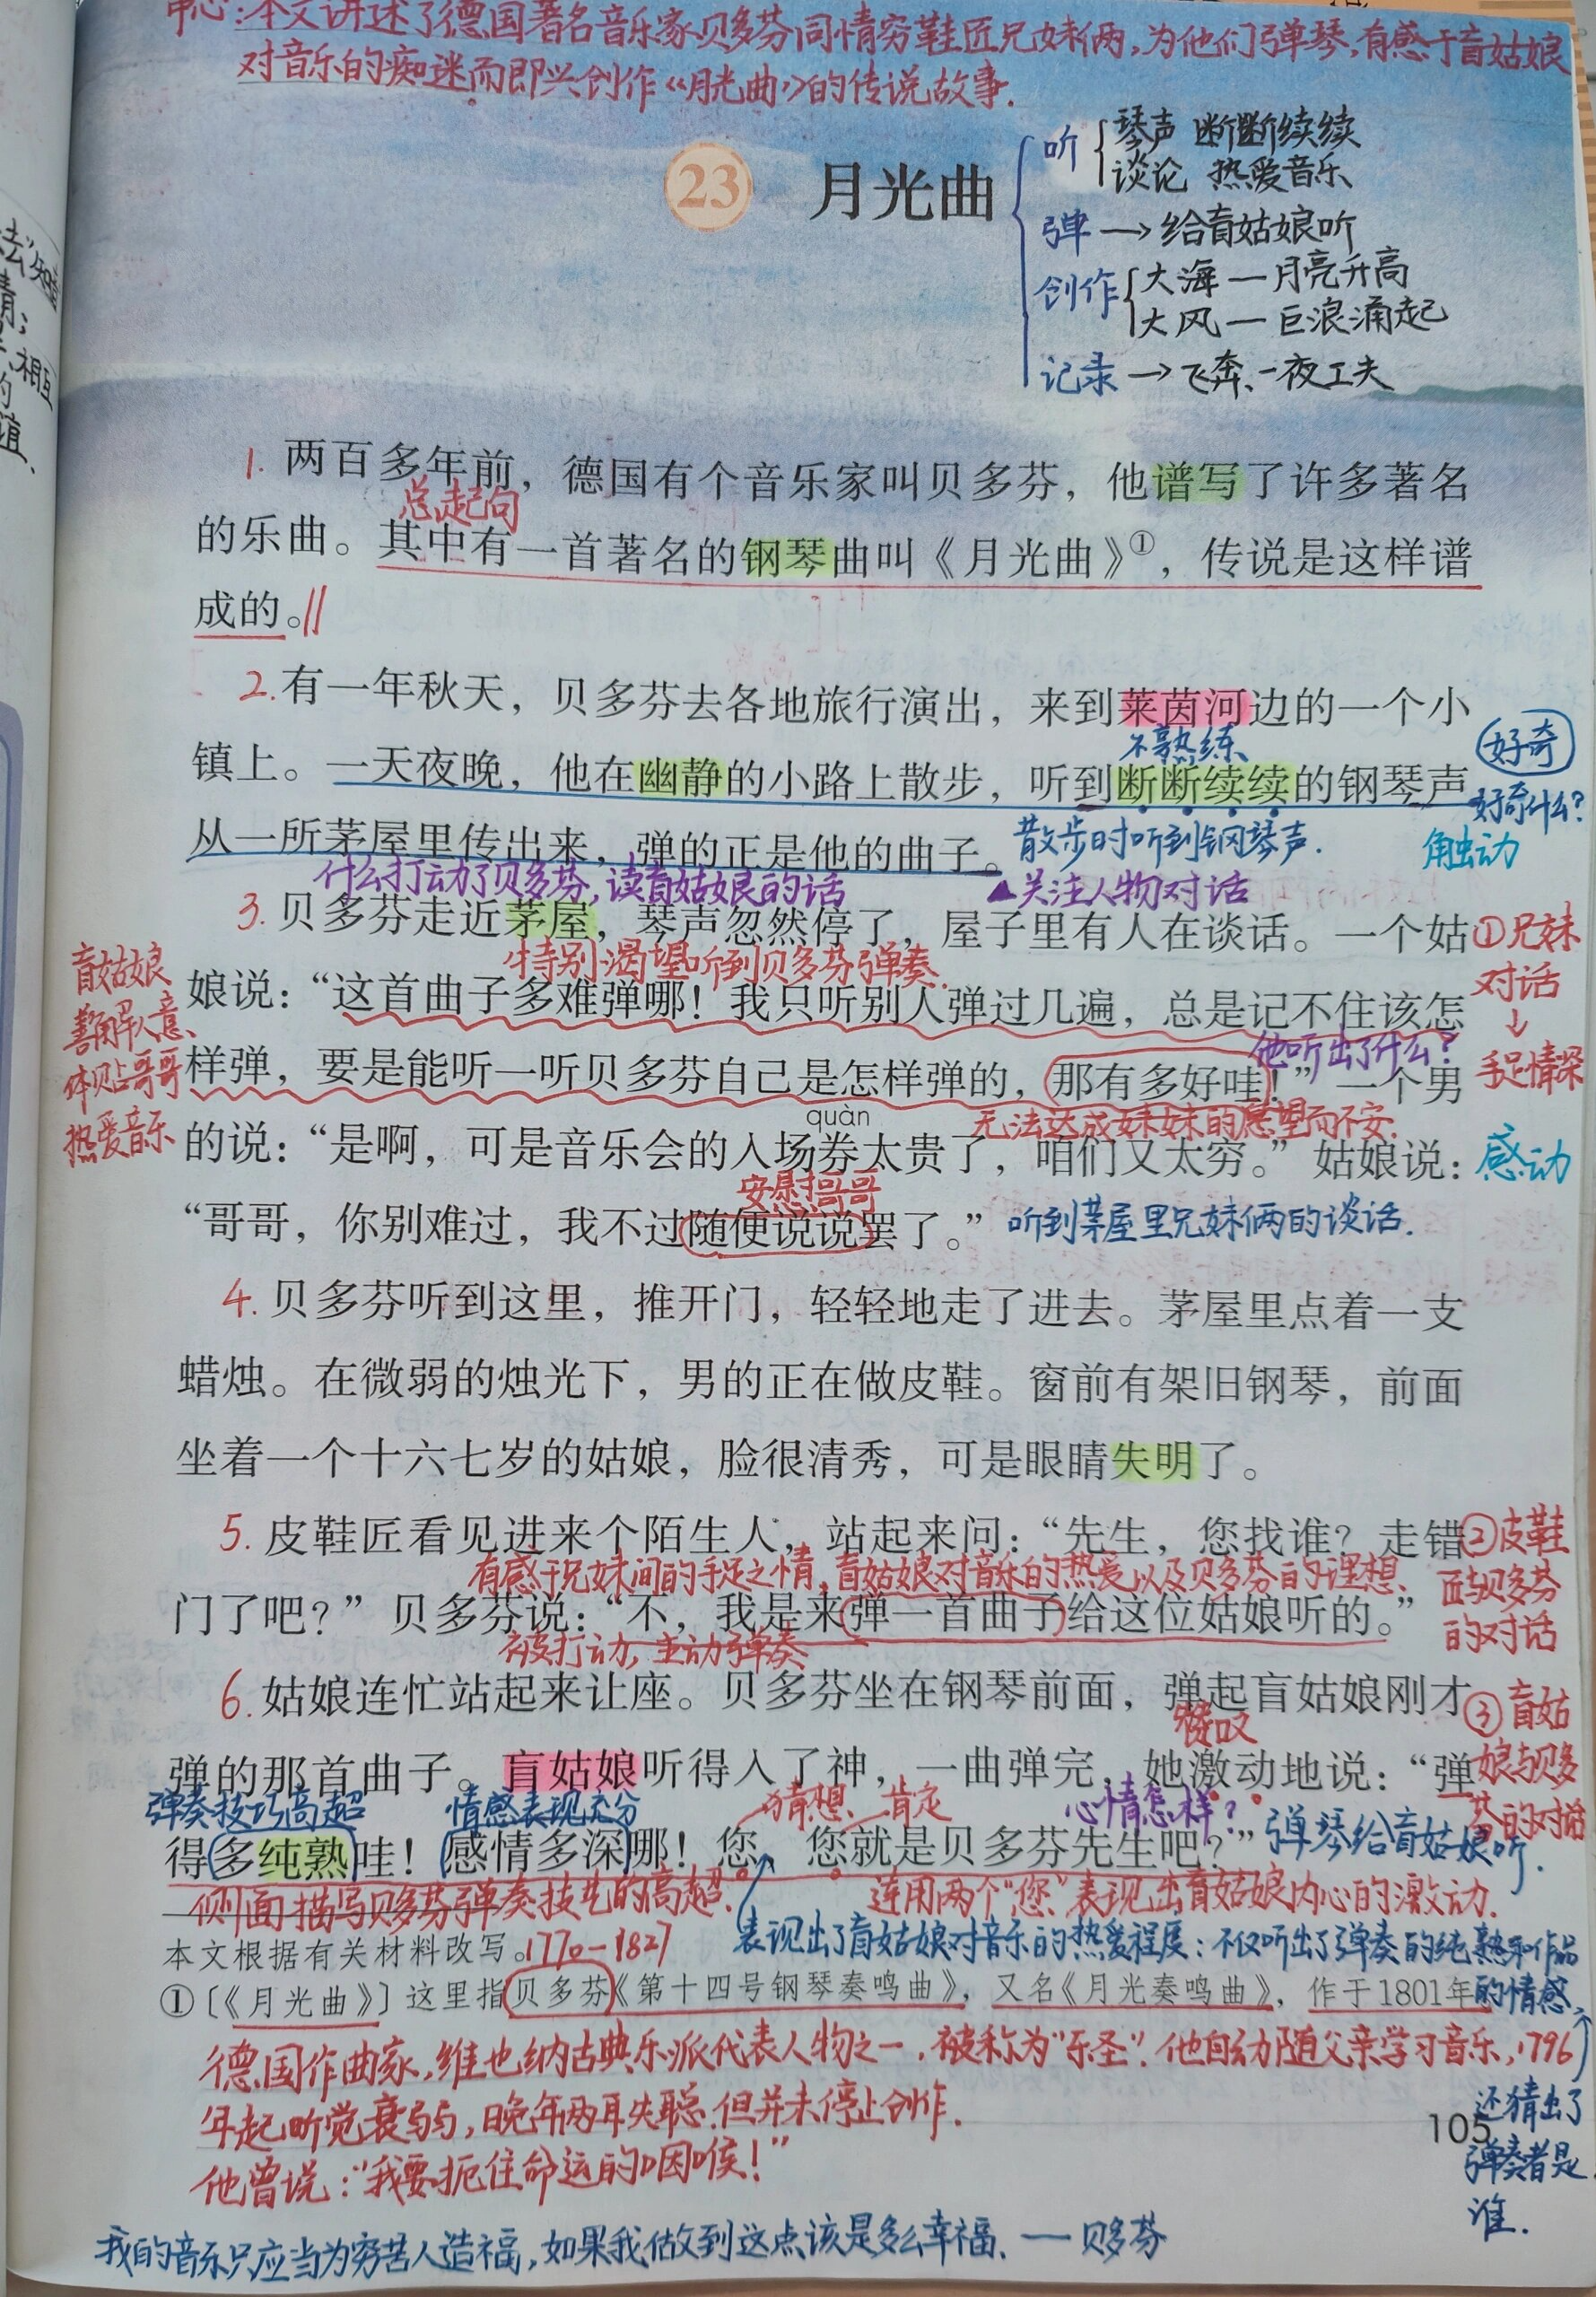 中心:本文讲述了德国著名音乐家贝多芬同情穷鞋匠兄妹俩,为他们弹琴,有感于盲姑娘
对音乐的痴迷而即兴创作《月光曲》的传说故事.
23 月光曲
听 琴声 断断续续
谈论 热爱音乐
弹→给盲姑娘听
创作 大海—月亮升高
大风—巨浪涌起
记录→飞奔、一夜工夫
1. 两百多年前,德国有个音乐家叫贝多芬,他谱写了许多著名
总起句
的乐曲。其中有一首著名的钢琴曲叫《月光曲》①,传说是这样谱
成的。
2. 有一年秋天,贝多芬去各地旅行演出,来到莱茵河边的一个小
不熟练
好奇
镇上。一天夜晚,他在幽静的小路上散步,听到断断续续的钢琴声
好奇什么?
从一所茅屋里传出来,弹的正是他的曲子。散步时听到钢琴声.
触动
什么打动了贝多芬,读盲姑娘的话
▲关注人物对话
3. 贝多芬走近茅屋,琴声忽然停了,屋子里有人在谈话。一个姑
①兄妹
对话
↓
手足情深
盲姑娘
善解人意、
体贴哥哥
热爱音乐
特别渴望听到贝多芬弹奏.
娘说:“这首曲子多难弹哪!我只听别人弹过几遍,总是记不住该怎
他听出了什么?
样弹,要是能听一听贝多芬自己是怎样弹的,那有多好哇!”一个男
quàn
无法达成妹妹的愿望而不安.
的说:“是啊,可是音乐会的入场券太贵了,咱们又太穷。”姑娘说:
感动
安慰哥哥
“哥哥,你别难过,我不过随便说说罢了。”听到茅屋里兄妹俩的谈话.
4. 贝多芬听到这里,推开门,轻轻地走了进去。茅屋里点着一支
蜡烛。在微弱的烛光下,男的正在做皮鞋。窗前有架旧钢琴,前面
坐着一个十六七岁的姑娘,脸很清秀,可是眼睛失明了。
5. 皮鞋匠看见进来个陌生人,站起来问:“先生,您找谁?走错
②皮鞋
匠与贝多芬
的对话
有感于兄妹间的手足之情,盲姑娘对音乐的热爱以及贝多芬的理想、
门了吧?”贝多芬说:“不,我是来弹一首曲子给这位姑娘听的。”
被打动,主动弹奏
6. 姑娘连忙站起来让座。贝多芬坐在钢琴前面,弹起盲姑娘刚才
③盲姑
娘与贝多
芬的对话
赞叹
弹的那首曲子。盲姑娘听得入了神,一曲弹完,她激动地说:“弹
弹奏技巧高超
情感表现充分
猜想、肯定
心情怎样?
得多纯熟哇!感情多深哪!您,您就是贝多芬先生吧?”弹琴给盲姑娘听.
侧面描写贝多芬弹奏技艺的高超.
连用两个“您”表现出盲姑娘内心的激动.
本文根据有关材料改写。1770-1827
表现出了盲姑娘对音乐的热爱程度:不仅听出了弹奏的纯熟和作品
的情感,
①〔《月光曲》〕这里指贝多芬《第十四号钢琴奏鸣曲》,又名《月光奏鸣曲》,作于1801年
还猜出了
弹奏者是
谁.
德国作曲家,维也纳古典乐派代表人物之一,被称为“乐圣”.他自幼随父亲学习音乐,1796
年起听觉衰弱,晚年两耳失聪.但并未停止创作.
他曾说:“我要扼住命运的咽喉!”
105
我的音乐只应当为穷苦人造福,如果我做到这点该是多么幸福、—贝多芬